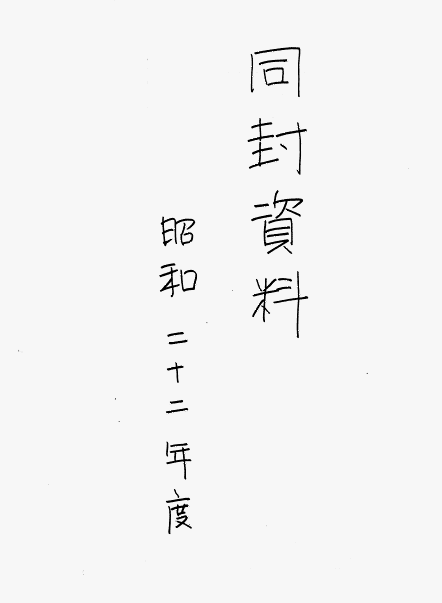 同封資料
昭和二十二年度